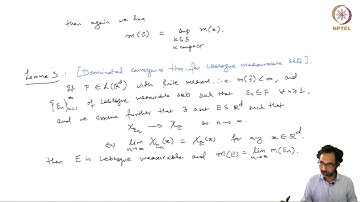 NPTEL
then again we have
m(E) = sup m(K).
K ⊆ E
K compact
Lemma 3 : [Dominated convergence thm. for Lebesgue measurable sets].
If F ∈ L(ℝᵈ) with finite measure. i.e. m(F) < ∞, and
{Eₙ}ₙ₌₁^∞ of Lebesgue measurable sets such that Eₙ ⊆ F ∀ n≥1,
and we assume further that ∃ a set E ⊆ ℝᵈ such that
χ_Eₙ → χ_E as n → ∞.
⇔ lim n→∞ χ_Eₙ(x) = χ_E(x) for any x ∈ ℝᵈ.
then E is Lebesgue measurable and m(E) = lim n→∞ m(Eₙ).